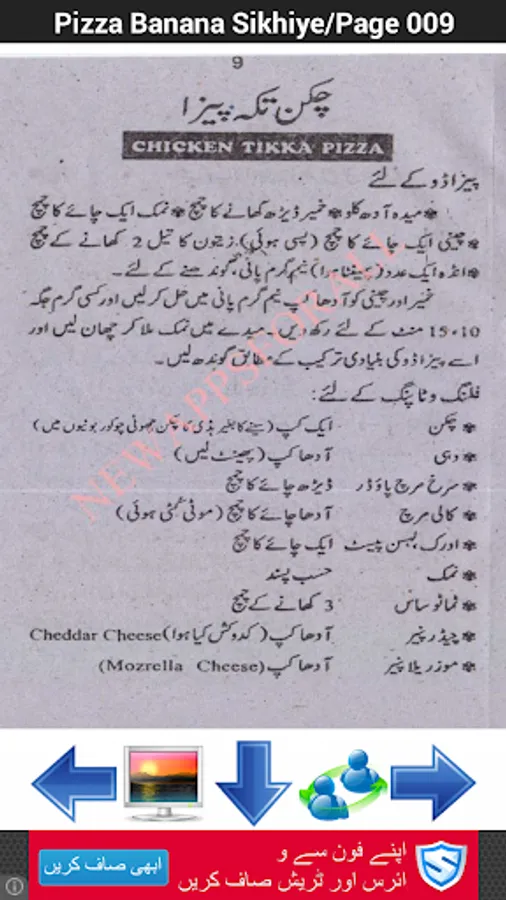 Pizza Banana Sikhiye/Page 009
9
چکن تکہ پیزا
CHICKEN TIKKA PIZZA
پیزا ڈو کے لئے
❋ میدہ آدھ کلو ❋ خمیر ڈیڑھ کھانے کا چمچ ❋ نمک ایک چائے کا چمچ
❋ چینی ایک چائے کا چمچ (پسی ہوئی)، زیتون کا تیل 2 کھانے کے چمچ
❋ انڈہ ایک عدد (پھینٹا ہوا) نیم گرم پانی، گوندھنے کے لئے۔
خمیر اور چینی کو آدھا کپ نیم گرم پانی میں حل کر لیں اور کسی گرم جگہ
10،15 منٹ کے لئے رکھ دیں۔ میدے میں نمک ملا کر چھان لیں اور
اسے پیزا ڈو کی بنیادی ترکیب کے مطابق گوندھ لیں۔
فلنگ و ٹاپنگ کے لئے:
❋ چکن ایک کپ (سینے کا بغیر ہڈی کا چکن چھوٹی چوکور بوٹیوں میں)
❋ دہی آدھا کپ (پھینٹ لیں)
❋ سرخ مرچ پاؤڈر ڈیڑھ چائے کا چمچ
❋ کالی مرچ آدھا چائے کا چمچ (موٹی کُٹی ہوئی)
❋ ادرک لہسن پیسٹ ایک چائے کا چمچ
❋ نمک حسب پسند
❋ ٹماٹو ساس 3 کھانے کے چمچ
❋ چیڈر پنیر آدھا کپ (کدوکش کیا ہوا) Cheddar Cheese
❋ موزریلا پنیر آدھا کپ (Mozrella Cheese)
NEWAPPSFORALL
اپنے فون سے و
ائرس اور ٹریش صاف کریں
ابھی صاف کریں